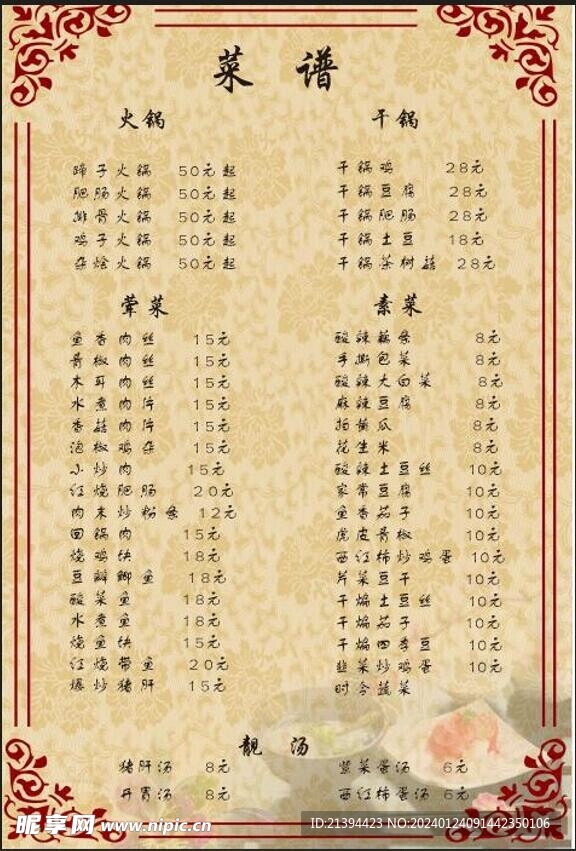 菜 谱
火锅
蹄子火锅 50元起
肥肠火锅 50元起
排骨火锅 50元起
鸡子火锅 50元起
杂烩火锅 50元起
干锅
干锅鸡 28元
干锅豆腐 28元
干锅肥肠 28元
干锅土豆 18元
干锅茶树菇 28元
荤菜
鱼香肉丝 15元
青椒肉丝 15元
木耳肉丝 15元
水煮肉片 15元
香菇肉片 15元
泡椒鸡杂 15元
小炒肉 15元
红烧肥肠 20元
肉末炒粉条 12元
回锅肉 15元
烧鸡块 18元
豆瓣鲫鱼 18元
酸菜鱼 18元
水煮鱼 18元
烧鱼块 15元
红烧带鱼 20元
爆炒猪肝 15元
素菜
酸辣藕条 8元
手撕包菜 8元
酸辣大白菜 8元
麻辣豆腐 8元
拍黄瓜 8元
花生米 8元
酸辣土豆丝 10元
家常豆腐 10元
鱼香茄子 10元
虎皮青椒 10元
西红柿炒鸡蛋 10元
芹菜豆干 10元
干煸土豆丝 10元
干煸茄子 10元
干煸四季豆 10元
韭菜炒鸡蛋 10元
时令蔬菜
靓 汤
猪肝汤 8元
开胃汤 8元
紫菜蛋汤 6元
西红柿蛋汤 6元
昵享网 www.nipic.cn
ID:21394423 NO:20240124091442350106